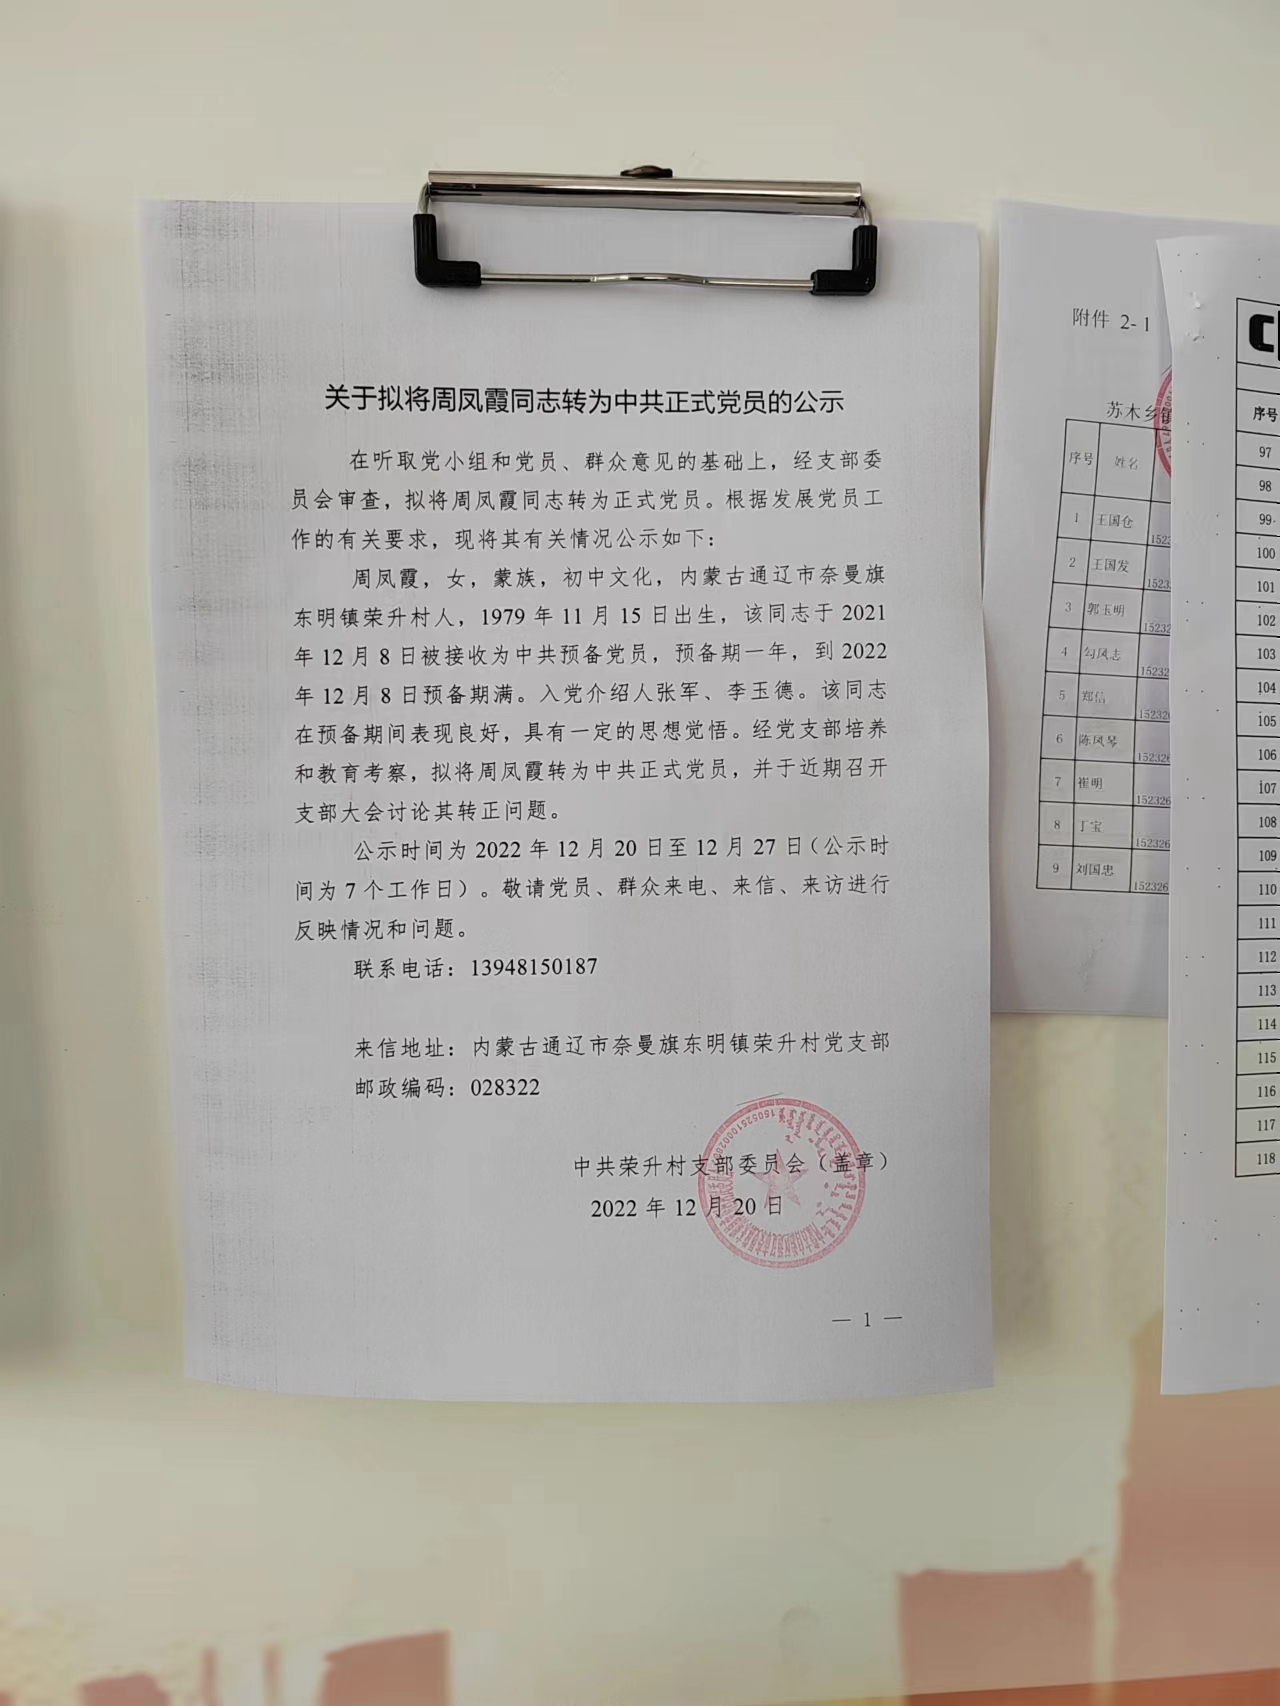 关于拟将周凤霞同志转为中共正式党员的公示
在听取党小组和党员、群众意见的基础上，经支部委
员会审查，拟将周凤霞同志转为正式党员。根据发展党员工
作的有关要求，现将其有关情况公示如下：
周凤霞，女，蒙族，初中文化，内蒙古通辽市奈曼旗
东明镇荣升村人，1979 年 11 月 15 日出生，该同志于 2021
年 12 月 8 日被接收为中共预备党员，预备期一年，到 2022
年 12 月 8 日预备期满。入党介绍人张军、李玉德。该同志
在预备期间表现良好，具有一定的思想觉悟。经党支部培养
和教育考察，拟将周凤霞转为中共正式党员，并于近期召开
支部大会讨论其转正问题。
公示时间为 2022 年 12 月 20 日至 12 月 27 日（公示时
间为 7 个工作日）。敬请党员、群众来电、来信、来访进行
反映情况和问题。
联系电话：13948150187
来信地址：内蒙古通辽市奈曼旗东明镇荣升村党支部
邮政编码：028322
中共荣升村支部委员会（盖章）
2022 年 12 月 20 日
— 1 —
附件 2-1
苏木乡镇
序号 姓名
1 王国仓 1523
2 王国发 1523
3 郭玉明 15232
4 勾凤志 15232
5 郑信 152326
6 陈凤琴 152326
7 崔明 152326
8 丁宝 152326
9 刘国忠 152326
序号
97
98
99
100
101
102
103
104
105
106
107
108
109
110
111
112
113
114
115
116
117
118